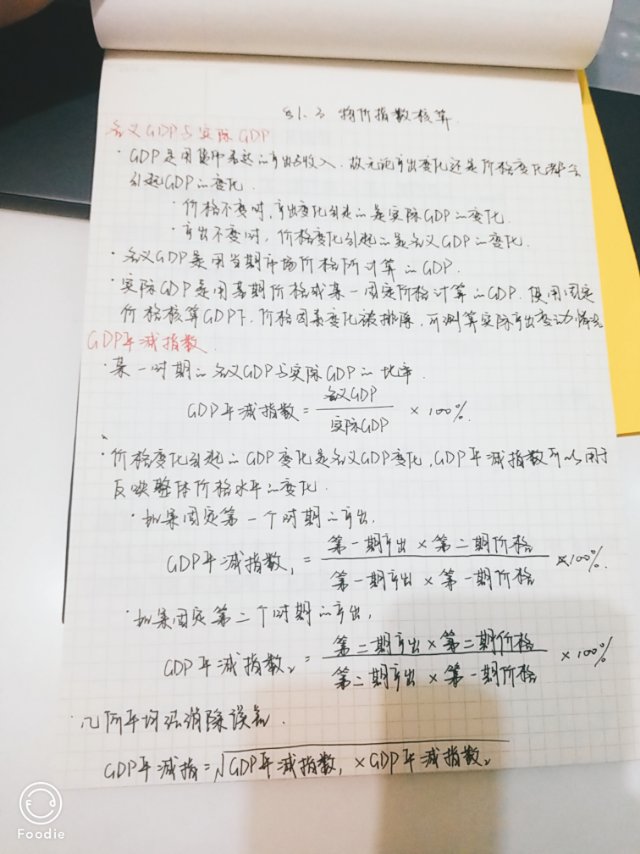 §1.3 物价指数核算
名义GDP与实际GDP
·GDP是用货币表达的产出与收入,故无论产出变化还是价格变化都会
引起GDP的变化.
·价格不变时,产出变化引起的是实际GDP的变化
·产出不变时,价格变化引起的是名义GDP的变化.
·名义GDP是用当期市场价格所计算的GDP.
·实际GDP是用基期价格或某一固定价格计算的GDP.使用固定
价格核算GDP下,价格因素变化被排除,可测算实际产出变动情况
GDP平减指数
·某一时期的名义GDP与实际GDP的比率.
GDP平减指数=名义GDP/实际GDP×100%.
·价格变化引起的GDP变化是名义GDP变化,GDP平减指数可以用于
反映整体价格水平的变化.
·如果固定第一个时期的产出.
GDP平减指数₁=第一期产出×第二期价格/第一期产出×第一期价格×100%.
·如果固定第二个时期的产出,
GDP平减指数₂=第二期产出×第二期价格/第二期产出×第一期价格×100%
·几何平均法消除误差.
GDP平减指=√GDP平减指数₁×GDP平减指数₂
Foodie